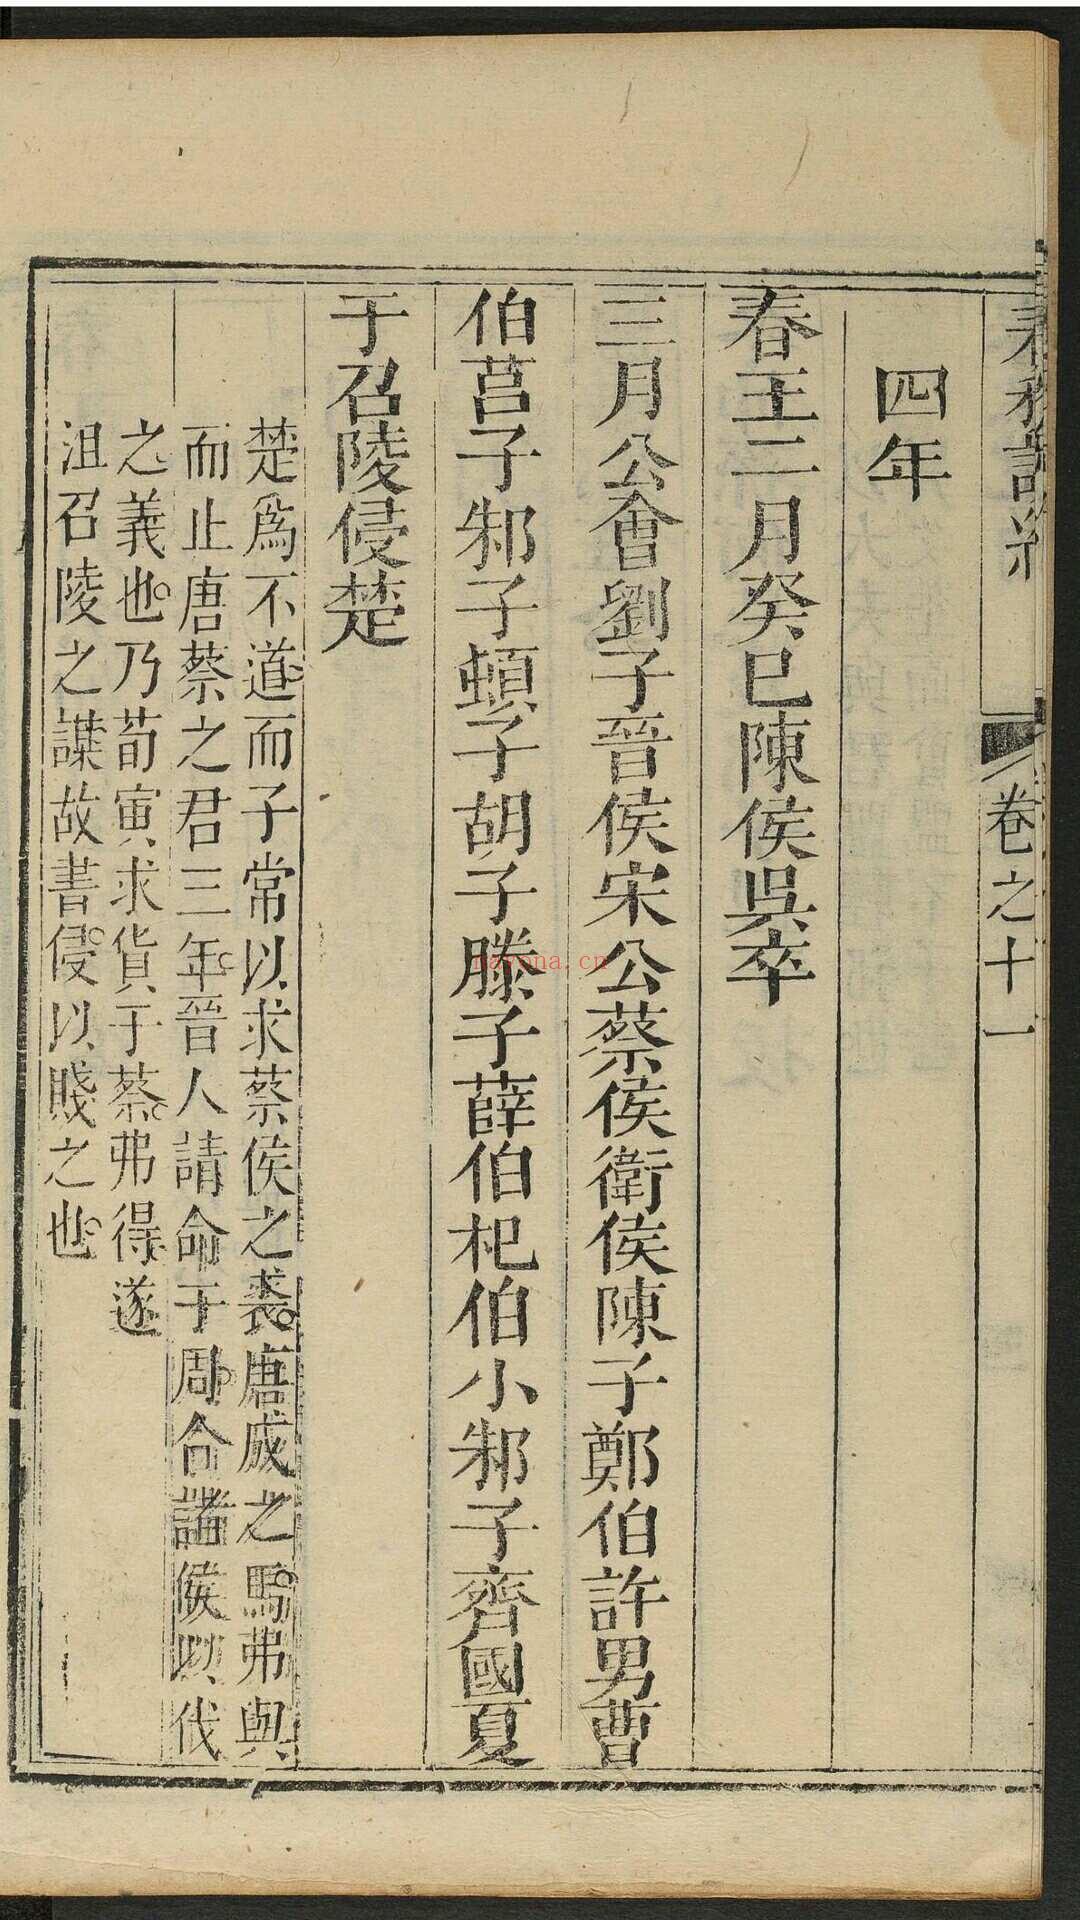 卷之十一
四年
春王二月癸巳陳侯吳卒
三月公會劉子晉侯宋公蔡侯衛侯陳子鄭伯許男曹
伯莒子邾子頓子胡子滕子薛伯杞伯小邾子齊國夏
于召陵侵楚
楚爲不道而子常以求蔡侯之裘唐成之馬弗與
而止唐蔡之君三年晉人請命于周合諸侯以伐
之義也乃荀寅求貨于蔡弗得遂
沮召陵之謀故書侵以賤之也
nayona.cn